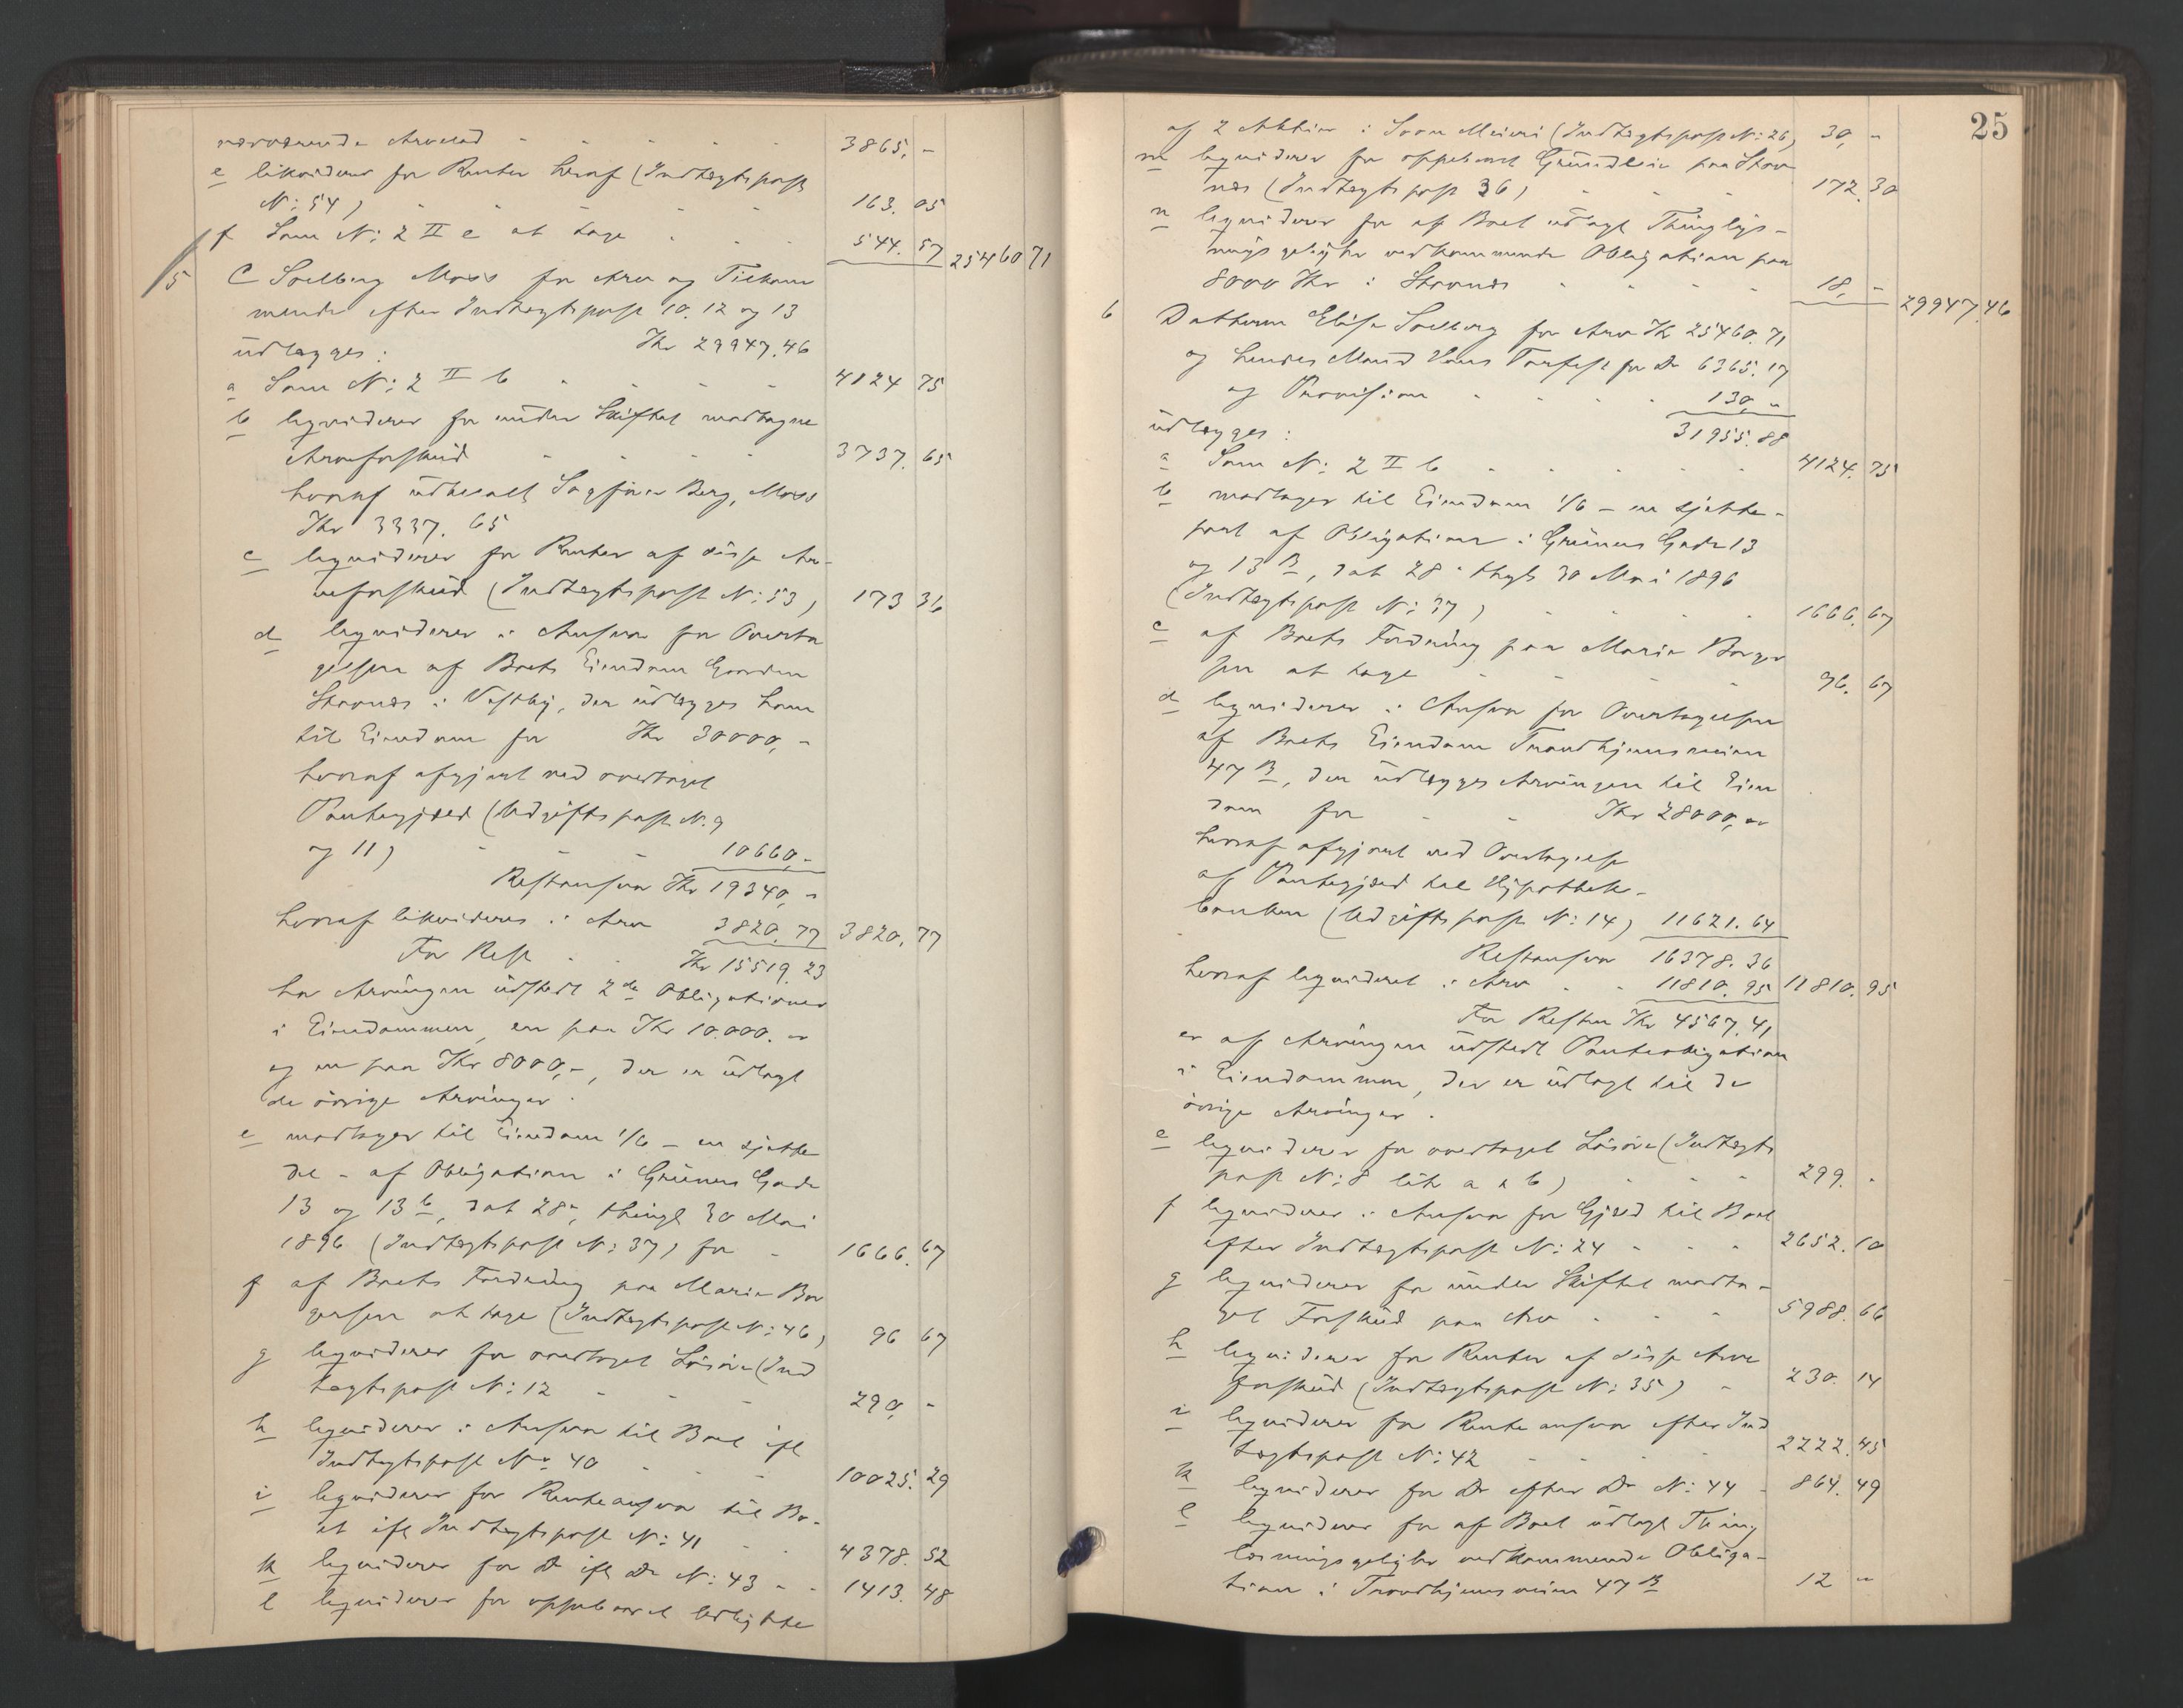 nærværende Arvelod - - - - - 3865, -
e likviderer for Renter heraf (Indtægtspost
N: 54) - - - - 163. 05
f Som N: 2 II e at tage - - - 544. 57 25460 71
5 C Soelberg Moss for Arv og Tilkom
mende efter Indtægtspost 10. 12 og 13
Kr 29947.46
udlægges:
a Som N: 2 II b - - - - 4124 75
b liqviderer for under Skiftet modtagne
Arveforskud - - - - 3737. 65
hvoraf udbetalt Sagfører Berg, Moss
Kr 3337. 65
c liqviderer for Renter af disse Ar-
veforskud (Indtægtspost N: 53) 173 36
d liqviderer i Ansvar for Overta
gelsen af Boets Eiendom Gaarden
Stavnes i Vestby, der udlægges ham
til Eiendom for Kr 30000, -
hvoraf afgjort ved overtaget
Pantegjæld (Udgiftspost N. 9
og 11) - - - 10660, -
Restansvar Kr 19340, -
hvoraf likvideres i Arv 3820. 77 3820, 77
For Rest - - Kr 15519. 23
har Arvingen udstedt 2de Obligationer
i Eiendommen, en paa Kr 10.000. -
og en paa Kr 8000, -, der er udlagt
de øvrige Arvinger.
e modtager til Eiendom 1/6 - en sjette
del - af Obligation i Grüners Gade
13 og 13 b, dat 28-, thingl 30 Mai
1896 (Indtægtspost N: 37) for - 1666. 67
f af Boets Fordring paa Marie Bor
gersen at tage (Indtægtspost N: 46) 96 67
g liqviderer for overtaget Løsøre (Ind
tægtspost N: 12 - - - 290, -
h liqviderer i Ansvar til Boet ifl
Indtægtspost No 40 - - - 10025. 29
i liqviderer for Renteansvar til Bo-
et ifl Indtægtspost N: 41 - - 4378. 52
k liqviderer for Do ifl Do N: 43 - - 1413. 48
l liqviderer for oppebaaret Udbytte
25
af 2 Aktier i Soon Meieri (Indtægtspost N: 26) 30, -
m liqviderer for oppebaaret Grundleie paa Stav
nes (Indtægtspost 36) - - - 172. 30
n liqviderer for af Boet udlagt Thinglys-
ningsgebyhr vedkommende Obligation paa
8000 Kr i Stavnes - - - - 18, - 29947.46
6 Datteren Elise Soelberg for Arv Kr 25460. 71
og hendes Mand Hans Torfest for Do 6365. 17
og Provision - - - - 130, -
31955. 88
udlægges:
a Som N: 2 II b - - - - - 4124. 75
b modtager til Eiendom 1/6 - en sjette-
part af Obligation i Grüners Gade 13
og 13 B, dat 28- thgl 30 Mai 1896
(Indtægtspost N: 37) - - - - 1666. 67
c af Boets Fordring paa Marie Borger
sen at tage - - - - 96. 67
d liqviderer i Ansvar for Overtagelsen
af Boets Eiendom Trondhjemsveien
47 B, der udlægges Arvingen til Eien
dom for - - Kr 28000, -
hvoraf afgjort ved Overtagelse
af Pantegjæld til Hypothek-
banken (Udgiftspost N: 14) 11621. 64
Restansvar 16378. 36
hvoraf liqvideret i Arv - - 11810. 95 11810. 95
For Resten Kr 4567. 41
er af Arvingen udstedt Panteobligation
i Eiendommen, der er udlagt til de
øvrige Arvinger.
e liqviderer for overtaget Løsøre (Indtægts
post N: 8 litr a & b) - - - 299. -
f liqviderer i Ansvar for Gjæld til Boet
efter Indtægtspost N: 24 - - - 2652. 10
g liqviderer for under Skiftet modta-
get Forskud paa Arv - - - 5988. 66
h liqviderer for Renter af disse Arve
forskud (Indtægtspost N: 35) - 230. 14
i liqviderer for Renteansvar efter Ind
tægtspost N: 42 - - - - 2222. 45
k liqviderer for Do efter Do N: 44 - 864. 49
l liqviderer for af Boet udlagt Thing
læsningsgebyhr vedkommende Obliga-
tion i Trondhjemsveien 47 B 12 -